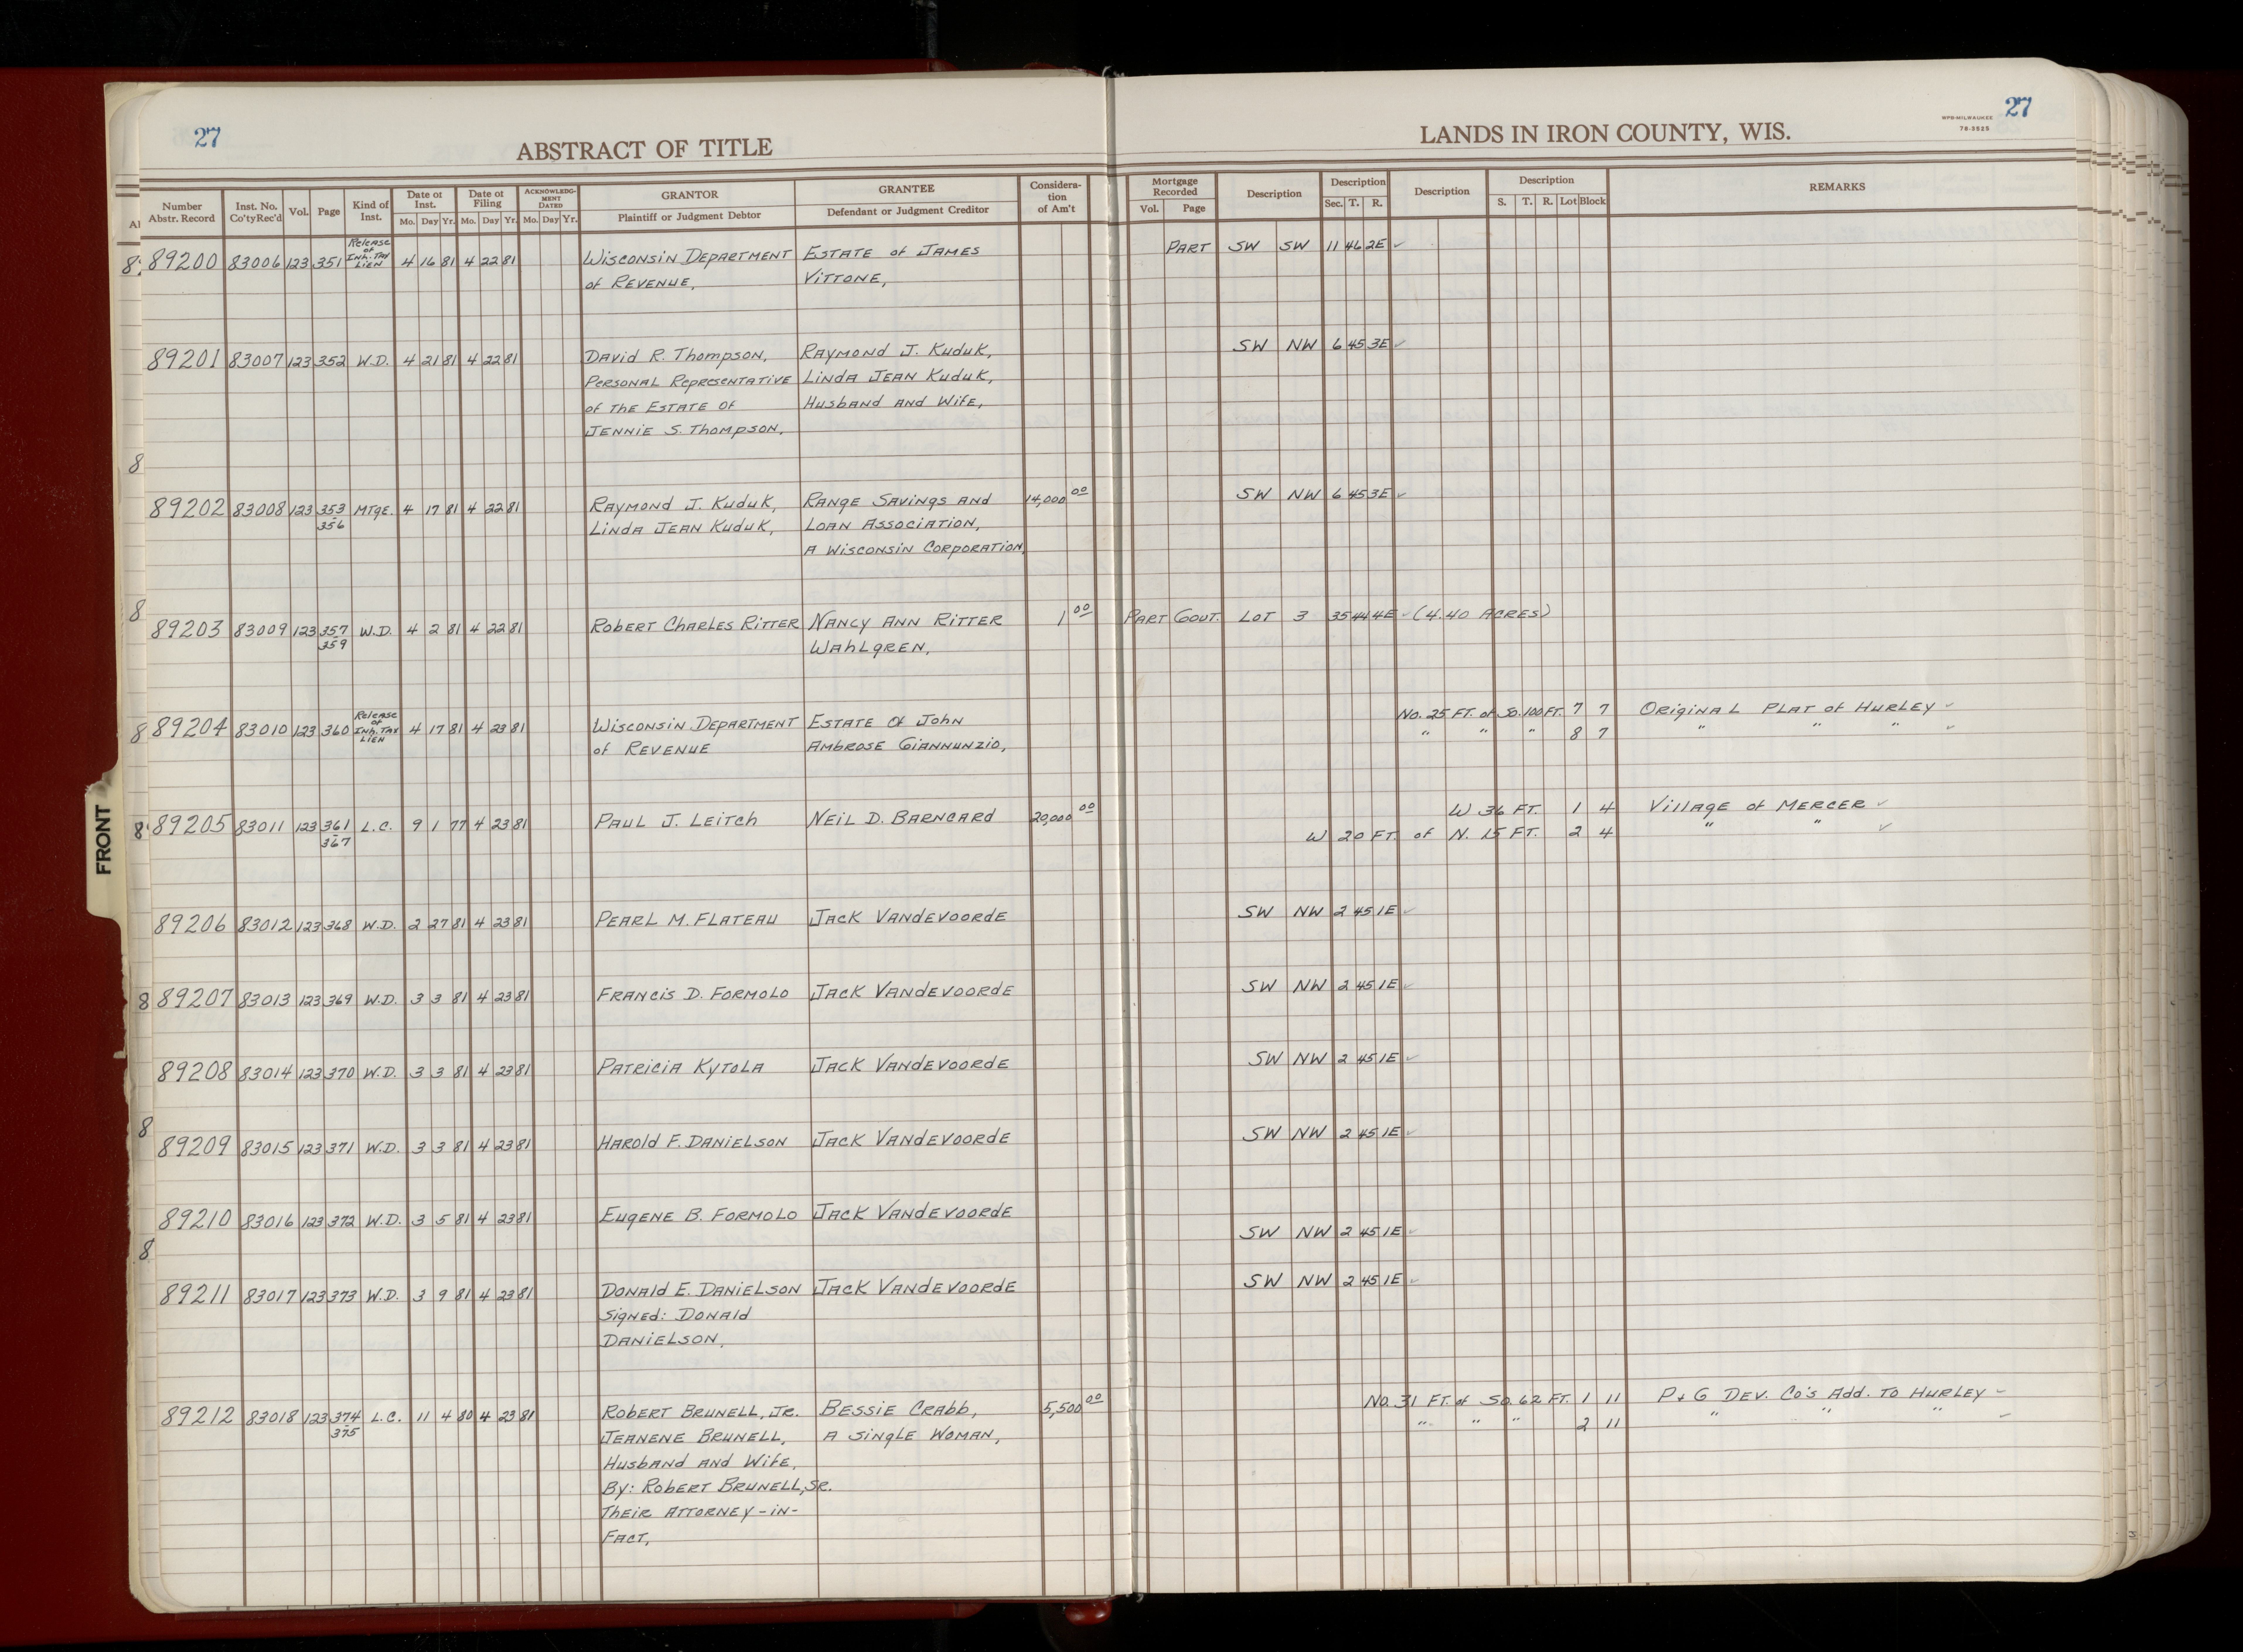 27
ABSTRACT OF TITLE
LANDS IN IRON COUNTY, WIS.
WPB-MILWAUKEE
78-3525
27
Number Abstr. Record | Inst. No. Co'ty Rec'd | Vol. | Page | Kind of Inst. | Date of Inst. Mo. Day Yr. | Date of Filing Mo. Day Yr. | ACKNOWLEDGMENT DATED Mo. Day Yr. | GRANTOR Plaintiff or Judgment Debtor | GRANTEE Defendant or Judgment Creditor | Consideration of Am't | Mortgage Recorded Vol. Page | Description | Description Sec. T. R. | Description | Description S. T. R. Lot Block | REMARKS
89200 83006 123 351 Release of Inh. Tax Lien 4 16 81 4 22 81 Wisconsin Department Estate of James PART SW SW 11 46 2E ✓
of Revenue, Vittone,
89201 83007 123 352 W.D. 4 21 81 4 22 81 David R. Thompson, Raymond J. Kuduk, SW NW 6 45 3E ✓
Personal Representative Linda Jean Kuduk,
of the Estate of Husband and Wife,
Jennie S. Thompson,
89202 83008 123 353-356 Mtge. 4 17 81 4 22 81 Raymond J. Kuduk, Range Savings and 14,000 00 SW NW 6 45 3E ✓
Linda Jean Kuduk, Loan Association,
A Wisconsin Corporation,
89203 83009 123 357-359 W.D. 4 2 81 4 22 81 Robert Charles Ritter Nancy Ann Ritter 1 00 Part Gout. Lot 3 35 44 4E ✓ (4.40 Acres)
Wahlgren,
89204 83010 123 360 Release of Inh. Tax Lien 4 17 81 4 23 81 Wisconsin Department Estate of John No. 25 Ft. of So. 100 Ft. 7 7 Original Plat of Hurley ✓
of Revenue Ambrose Giannunzio, " " " 8 7 " " " ✓
89205 83011 123 361-367 L.C. 9 1 77 4 23 81 Paul J. Leitch Neil D. Barncard 20,000 00 W 36 Ft. 1 4 Village of Mercer ✓
W 20 Ft. of N. 15 Ft. 2 4 " " ✓
89206 83012 123 368 W.D. 2 27 81 4 23 81 Pearl M. Flateau Jack Vandevoorde SW NW 2 45 1E ✓
89207 83013 123 369 W.D. 3 3 81 4 23 81 Francis D. Formolo Jack Vandevoorde SW NW 2 45 1E ✓
89208 83014 123 370 W.D. 3 3 81 4 23 81 Patricia Kytola Jack Vandevoorde SW NW 2 45 1E ✓
89209 83015 123 371 W.D. 3 3 81 4 23 81 Harold F. Danielson Jack Vandevoorde SW NW 2 45 1E ✓
89210 83016 123 372 W.D. 3 5 81 4 23 81 Eugene B. Formolo Jack Vandevoorde SW NW 2 45 1E ✓
89211 83017 123 373 W.D. 3 9 81 4 23 81 Donald E. Danielson Jack Vandevoorde SW NW 2 45 1E ✓
Signed: Donald
Danielson,
89212 83018 123 374-375 L.C. 11 4 80 4 23 81 Robert Brunell, Jr. Bessie Crabb, 5,500 00 No. 31 Ft. of So. 62 Ft. 1 11 P & G Dev. Co's Add. to Hurley ✓
Jeanene Brunell, A Single Woman, " " " 2 11 " " " ✓
Husband and Wife,
By: Robert Brunell, Sr.
Their Attorney-in-
Fact,
FRONT